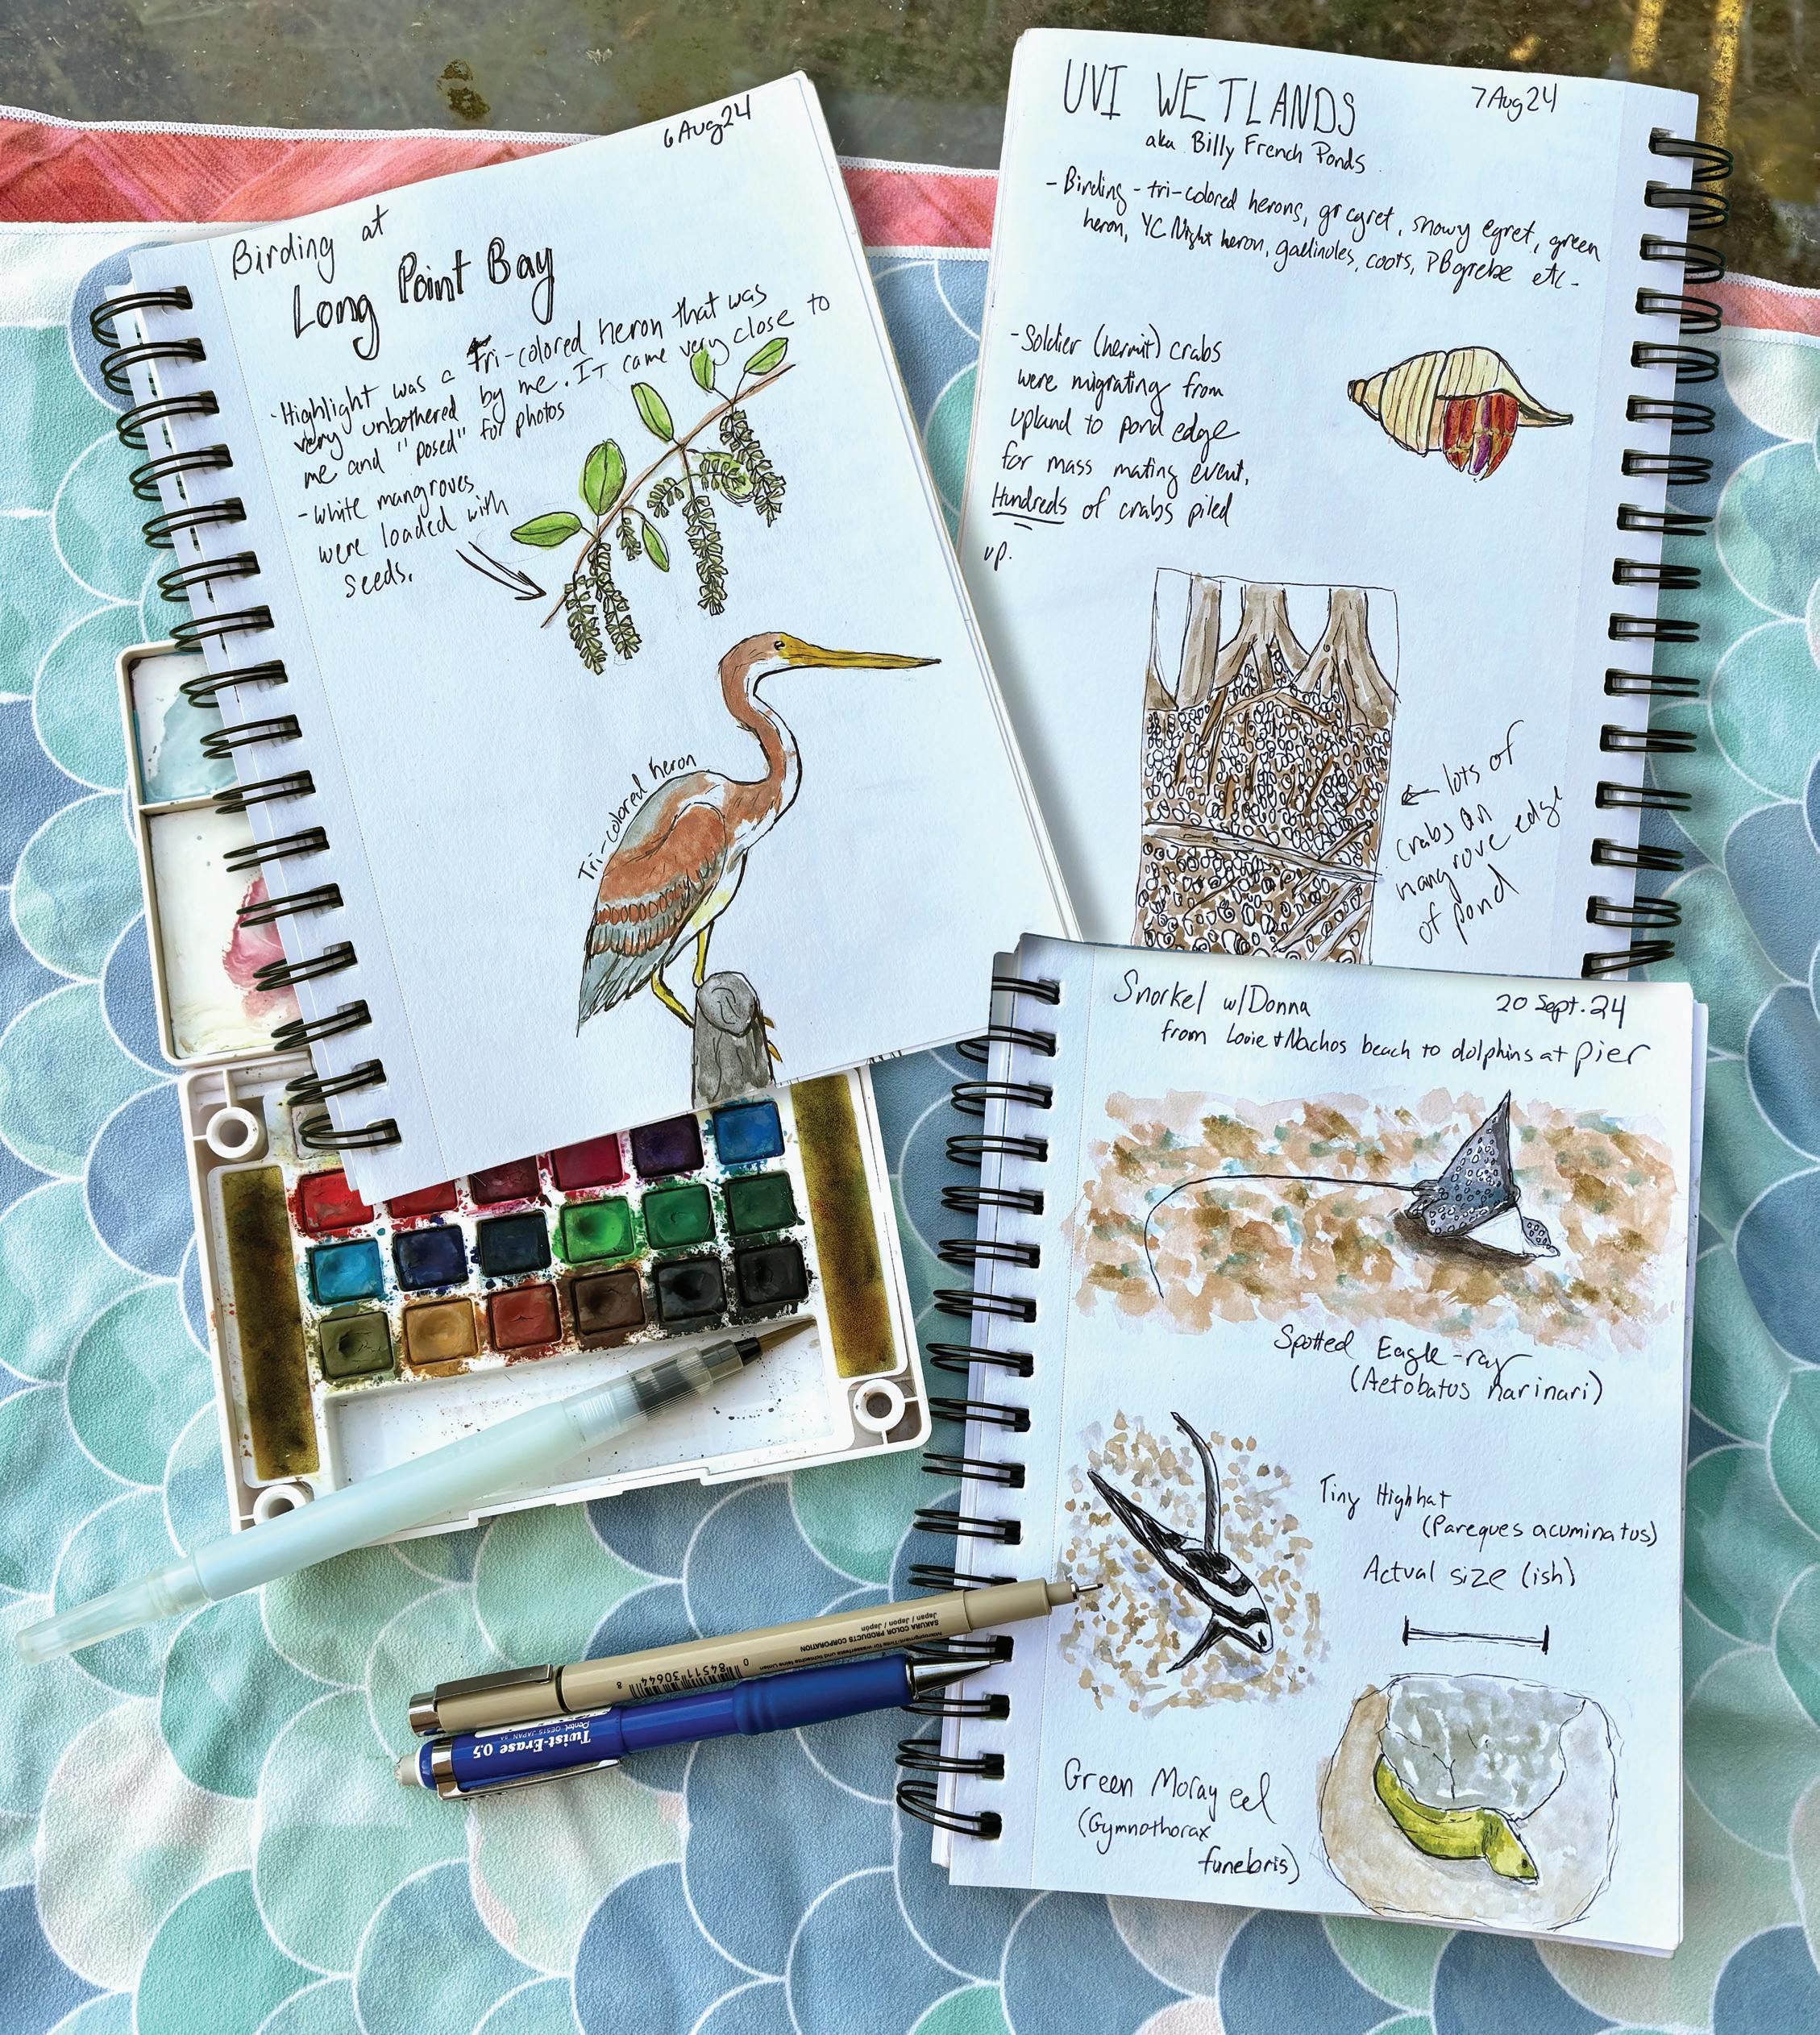 6 Aug 24
Birding at
Long Point Bay
- Highlight was a Tri-colored heron that was
very unbothered by me. It came very close to
me and "posed" for photos
- white mangroves
were loaded with
seeds.
Tri-colored heron
UVI WETLANDS
7 Aug 24
aka Billy French Ponds
- Birding - tri-colored herons, gr egret, snowy egret, green
heron, YC Night heron, gallinules, coots, PB grebe etc -
- Soldier (hermit) crabs
were migrating from
upland to pond edge
for mass mating event.
Hundreds of crabs piled
up.
← lots of
crabs on
mangrove edge
of pond
Snorkel w/Donna
20 Sept. 24
from Louie + Nachos beach to dolphins at pier
Spotted Eagle-ray
(Aetobatus narinari)
Tiny Highhat
(Pareques acuminatus)
Actual size (ish)
Green Moray eel
(Gymnothorax
funebris)
SAKURA COLOR PRODUCTS CORPORATION
Japan / Japon / Japón
0 84511 30644 8
Twist-Erase 0.5
Pentel. QE515 JAPAN